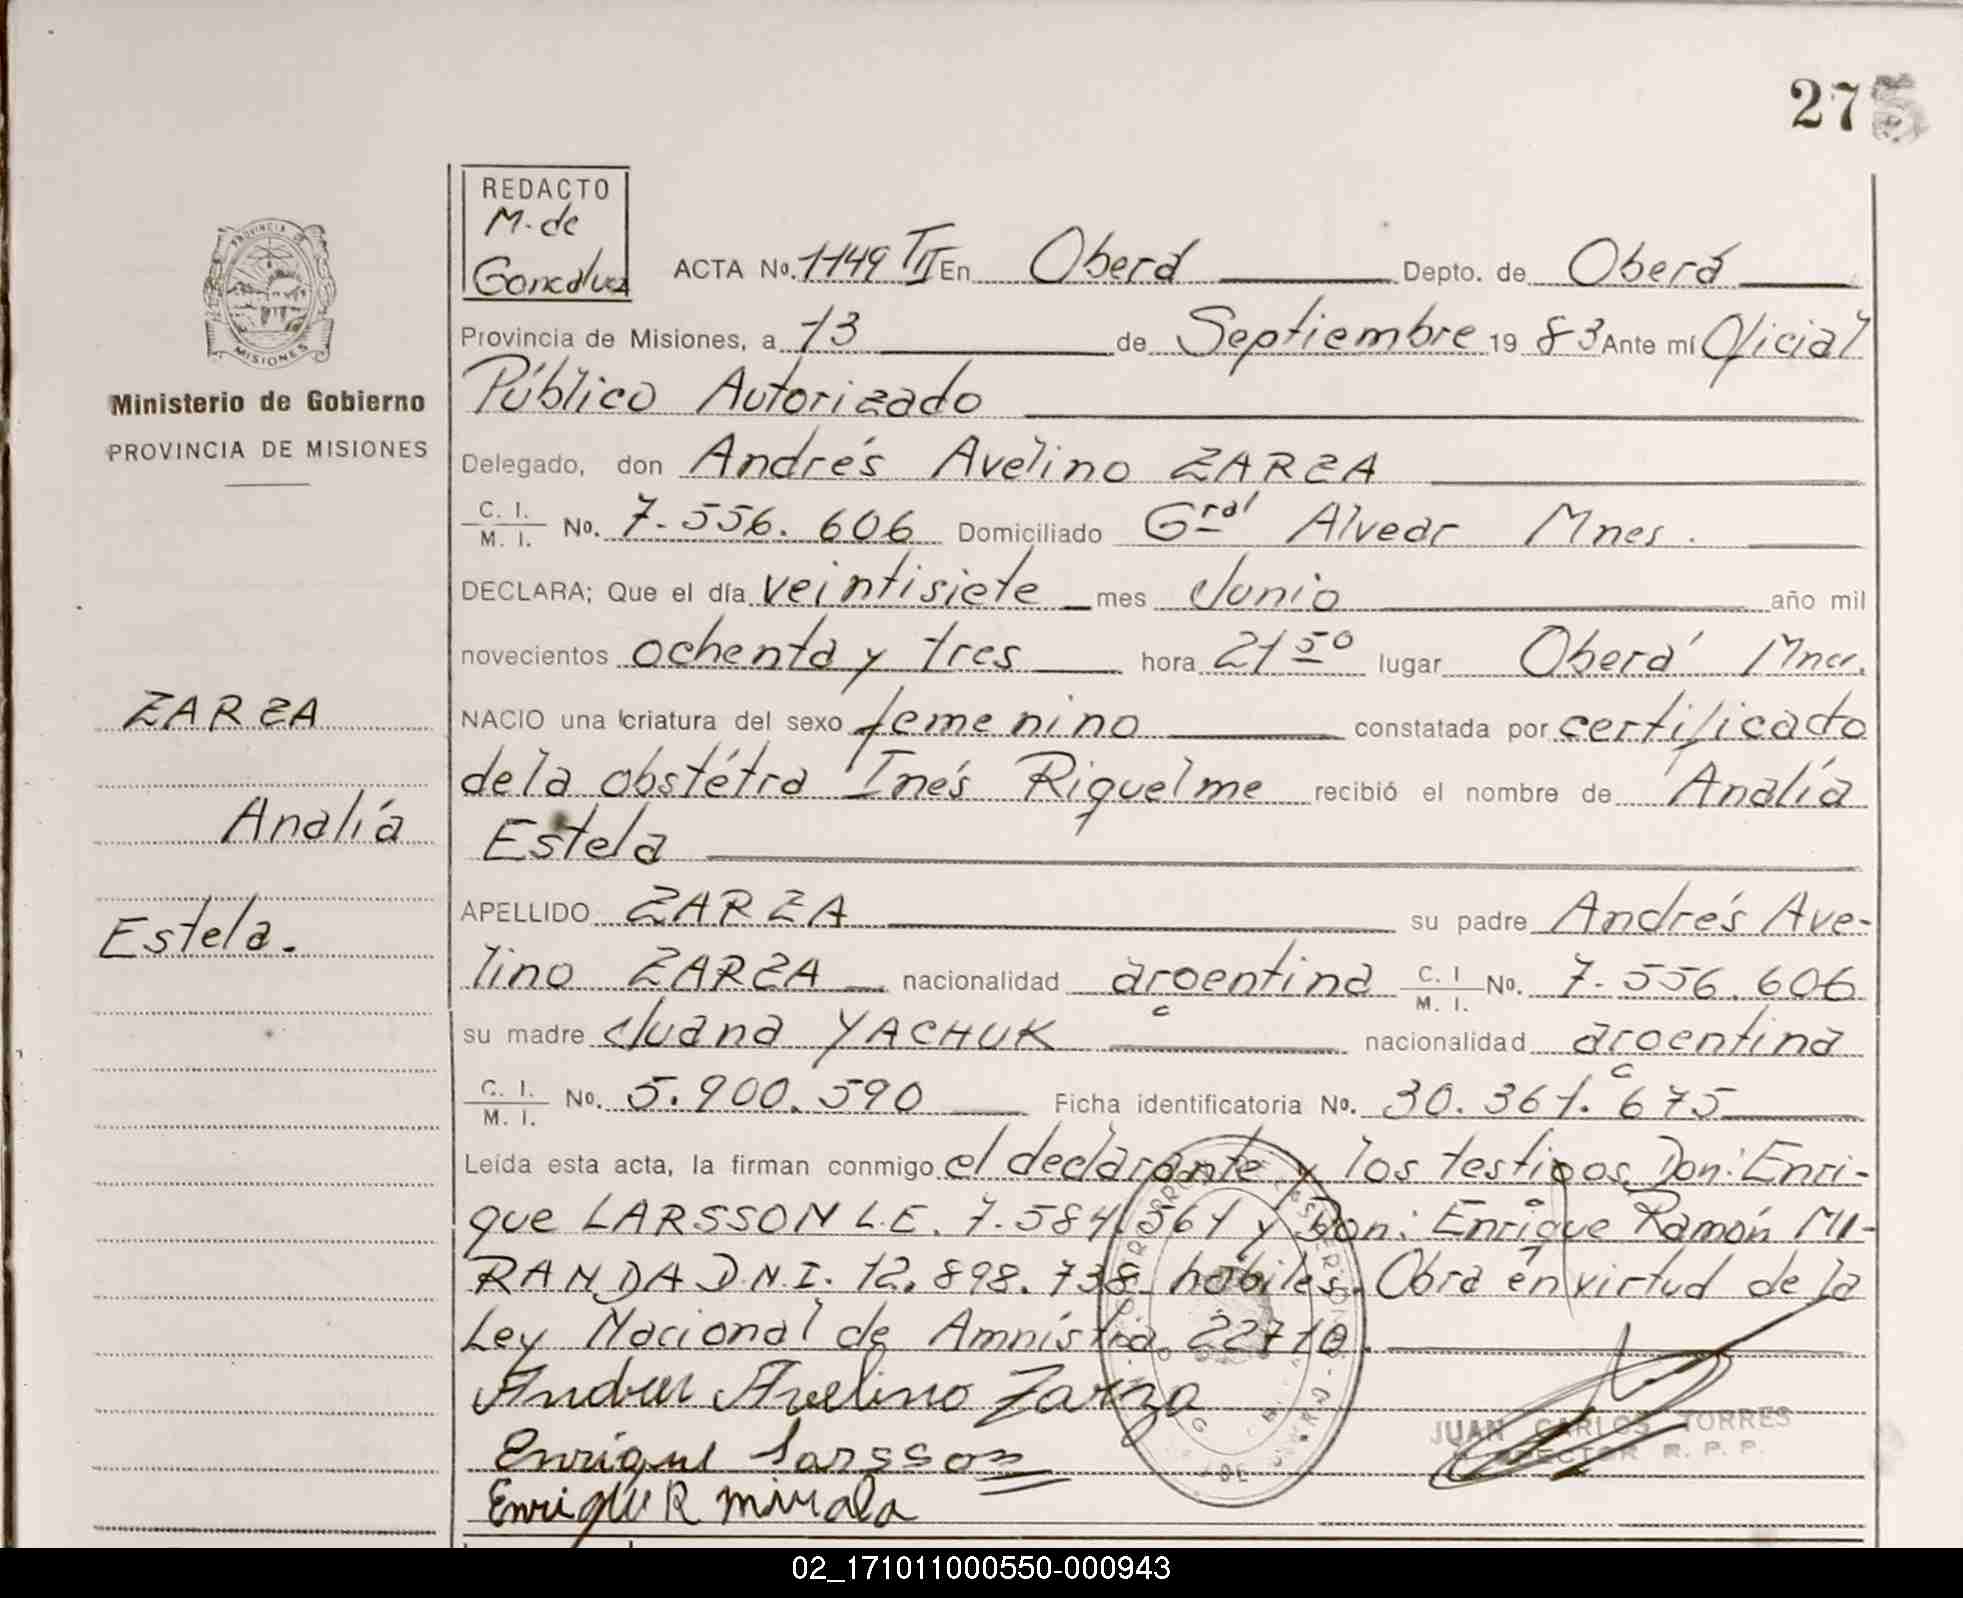 275
REDACTO
M. de
Goncalvez
ACTA No. 1149 TII En Oberá Depto. de Oberá
Provincia de Misiones, a 13 de Septiembre 1983 Ante mí Oficial
Público Autorizado
Delegado, don Andrés Avelino ZARZA
C. I.
M. I. No. 7.556.606 Domiciliado Gral Alvear Mnes.
DECLARA; Que el día veintisiete mes Junio año mil
novecientos ochenta y tres hora 21 50 lugar Oberá Mnes.
NACIO una criatura del sexo femenino constatada por certificado
de la obstétra Inés Riquelme recibió el nombre de Analía
Estela
APELLIDO ZARZA su padre Andrés Ave-
lino ZARZA nacionalidad argentina C. I
M. I. No. 7.556.606
su madre Juana YACHUK nacionalidad argentina
C. I.
M. I. No. 5.900.590 Ficha identificatoria No. 30.361.675
Leída esta acta, la firman conmigo el declarante y los testigos Don: Enri-
que LARSSON L.E. 7.584.561 y Don: Enrique Ramón MI-
RANDA D.N.I. 12.898.738 hábiles. Obra en virtud de la
Ley Nacional de Amnistia 22710.
Andres Avelino Zarza
Enrique Larsson
Enrique R mirada
JUAN CARLOS TORRES
DIRECTOR R. P. P.
PROVINCIA DE
MISIONES
Ministerio de Gobierno
PROVINCIA DE MISIONES
ZARZA
Analía
Estela.
02_171011000550-000943